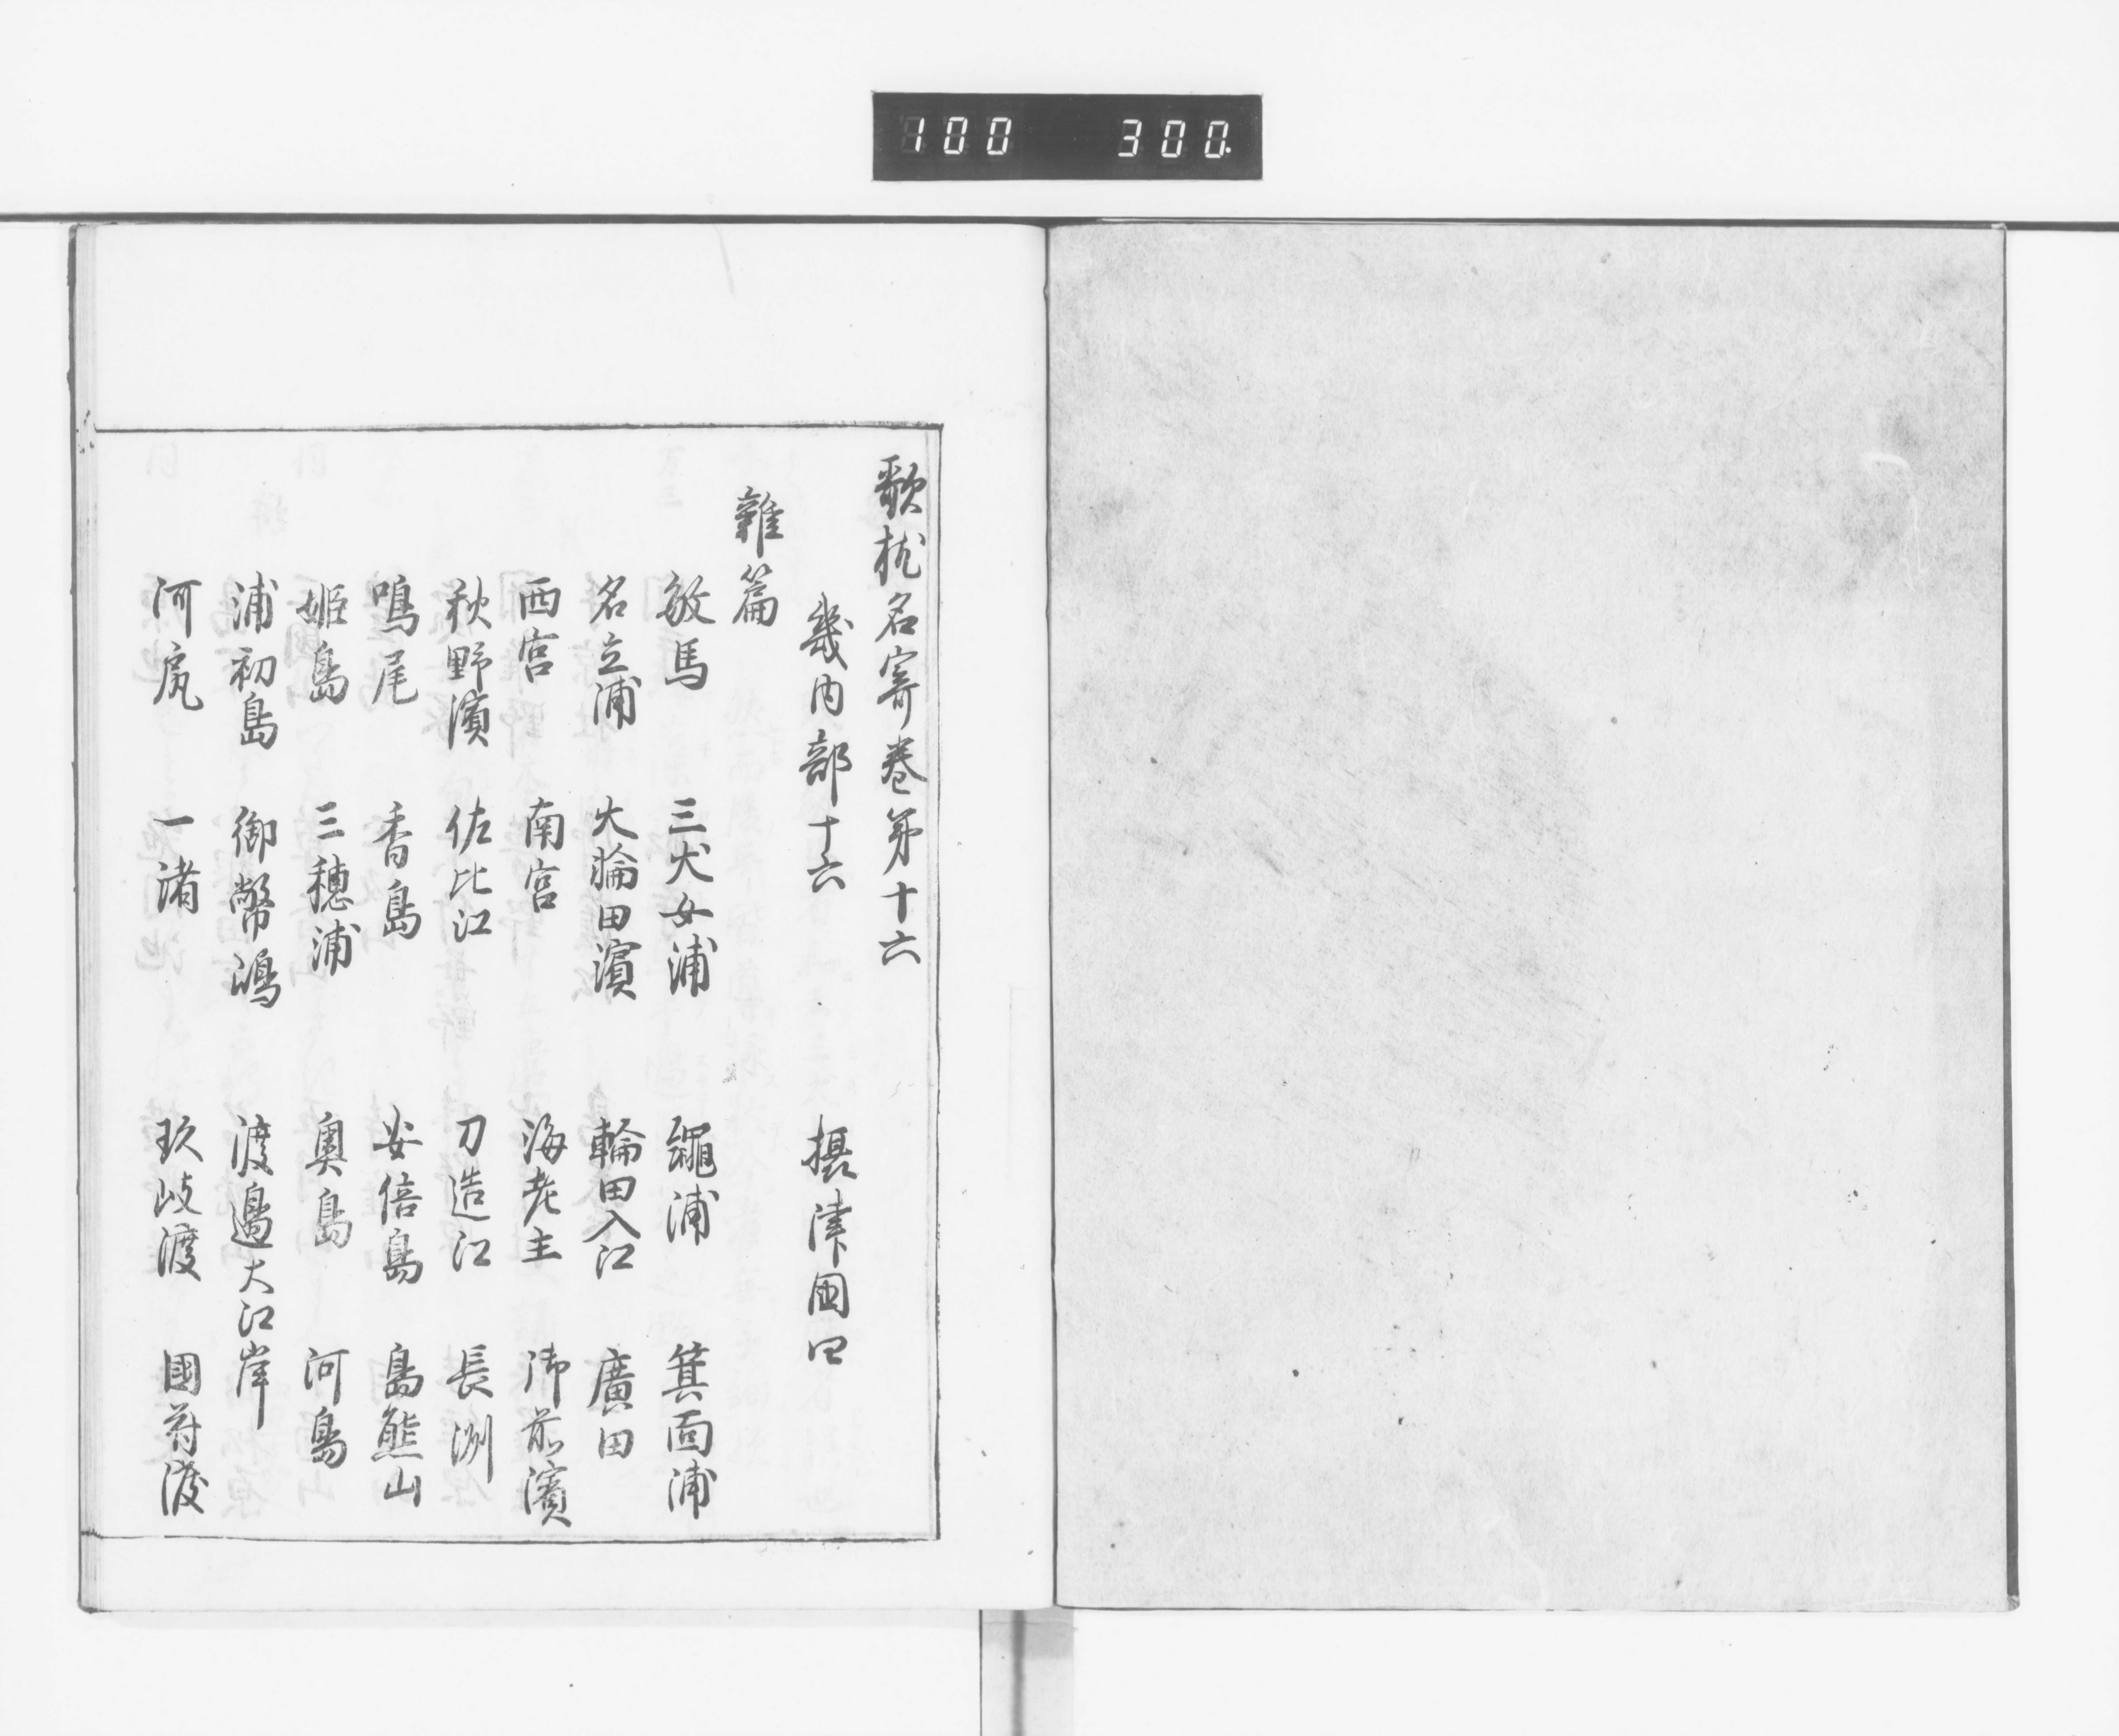 100 300.
歌枕名寄巻第十六
畿内部十六 摂津国四
雑篇
敏馬 三犬女浦 繩浦 箕面浦
名立浦 大輪田濱 輪田入江 廣田
西宮 南宮 海老主 御前濱
秋野濱 佐比江 刀造江 長洲
鳴尾 香島 安倍島 島熊山
姫島 三穂浦 奥島 河島
浦初島 御幣鴻 渡邊大江岸
河尻 一渚 玖岐渡 國府渡